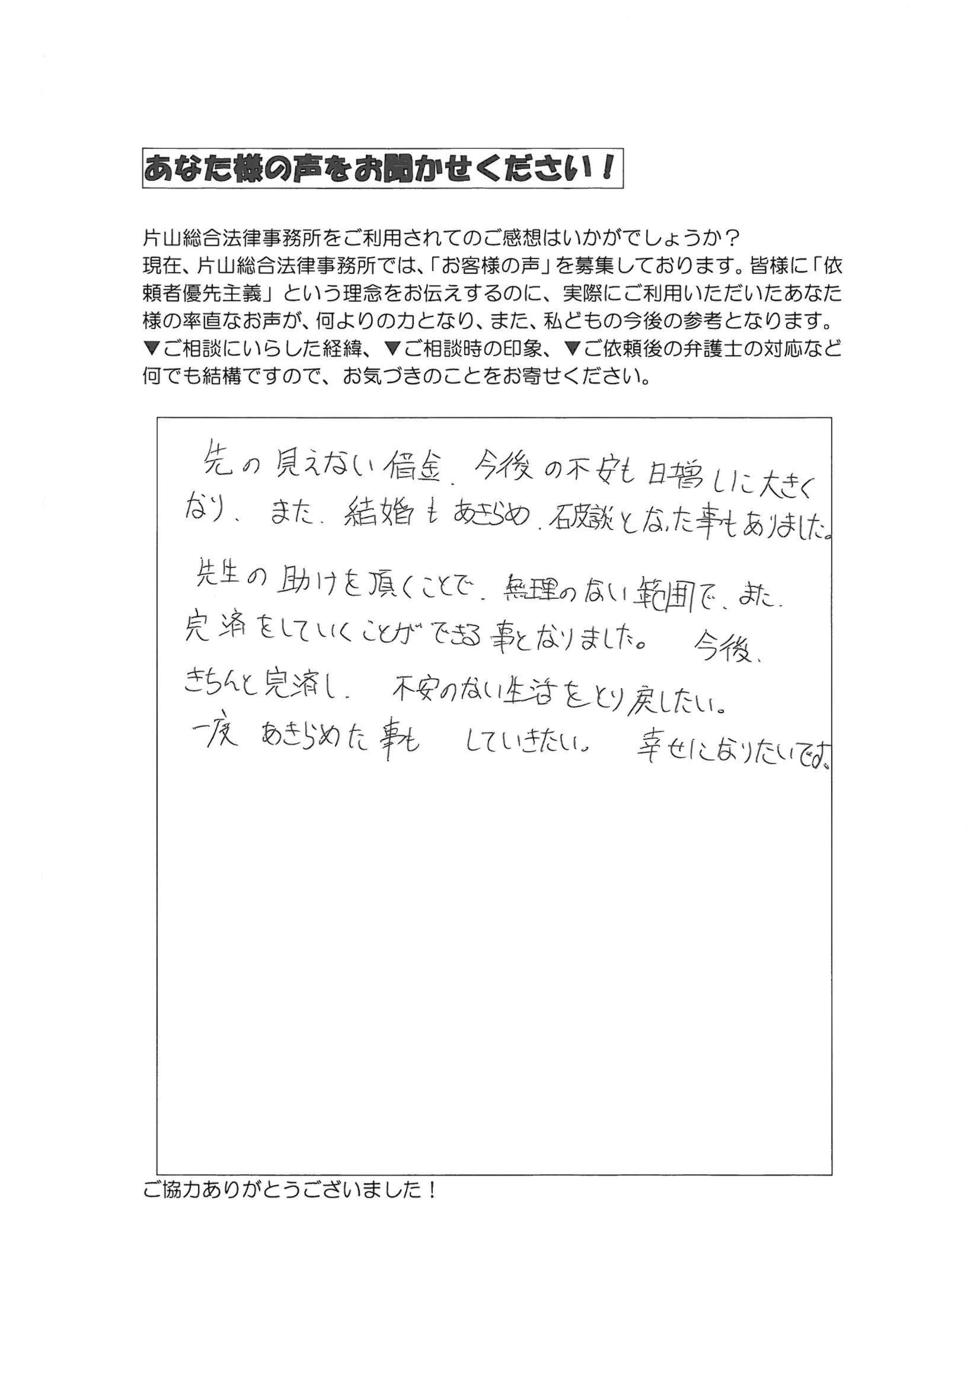 あなた様の声をお聞かせください！
片山総合法律事務所をご利用されてのご感想はいかがでしょうか？
現在、片山総合法律事務所では、「お客様の声」を募集しております。皆様に「依
頼者優先主義」という理念をお伝えするのに、実際にご利用いただいたあなた
様の率直なお声が、何よりの力となり、また、私どもの今後の参考となります。
▼ご相談にいらした経緯、▼ご相談時の印象、▼ご依頼後の弁護士の対応など
何でも結構ですので、お気づきのことをお寄せください。
先の見えない借金、今後の不安も日増しに大きく
なり、また、結婚もあきらめ、破談となった事もありました。
先生の助けを頂くことで、無理のない範囲で、また、
完済をしていくことができる事となりました。 今後、
きちんと完済し、 不安のない生活をとり戻したい。
一度 あきらめた事も していきたい。 幸せになりたいです。
ご協力ありがとうございました！